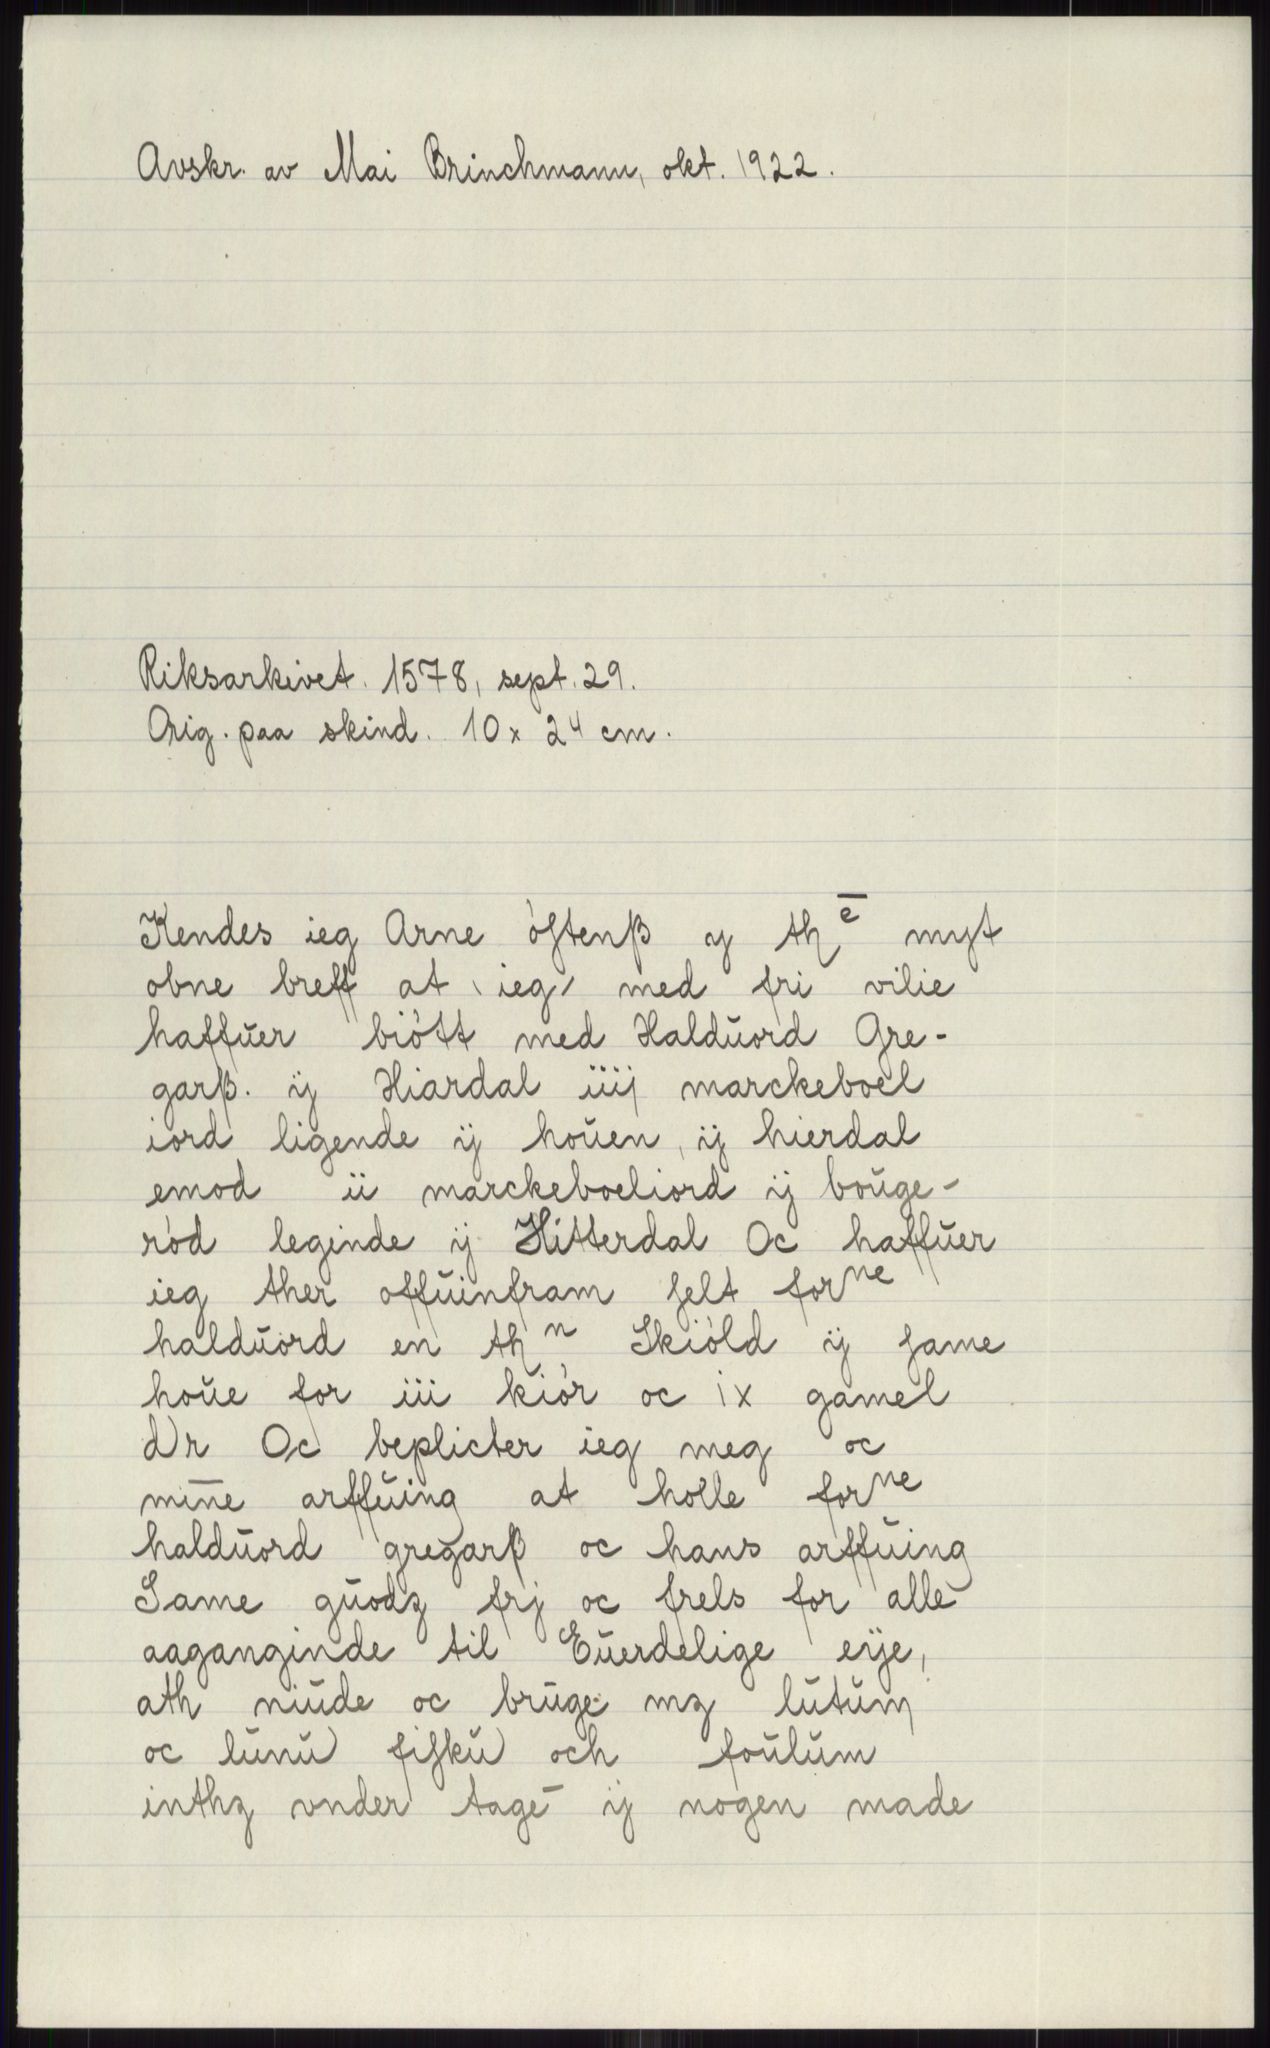 Avskr. av Mai Brinchmann, okt. 1922.
Riksarkivet. 1578, sept. 29.
Orig. paa skind. 10 x 24 cm.
Kendes ieg Arne óſtenß y thē myt
obne breff at ieg med fri vilie
haffŭer biótt med Haldŭord Gre-
garß. ÿ Hiardal iiij marckeboel
iord ligende ÿ hoŭen, ÿ hierdal
emod ii marckeboeliord ÿ boŭge-
ród leginde ÿ Hitterdal Oc haffŭer
ieg ther offŭinfram ſelt forne
haldŭord en thn Skióld ÿ ſame
hoŭe for iii kiór oc ix gamel
dr Oc beplicter ieg meg oc
mīne arffŭing at holle forne
haldŭord gregarß oc hans arffŭing
Same gŭodz frj oc frels for alle
aaganginde til Eŭerdelige eÿe,
ath niŭde oc brŭge mz lŭtŭm
oc lŭnŭ fiſkŭ och foŭlŭm
inthz vnder tagē ÿ nogen made